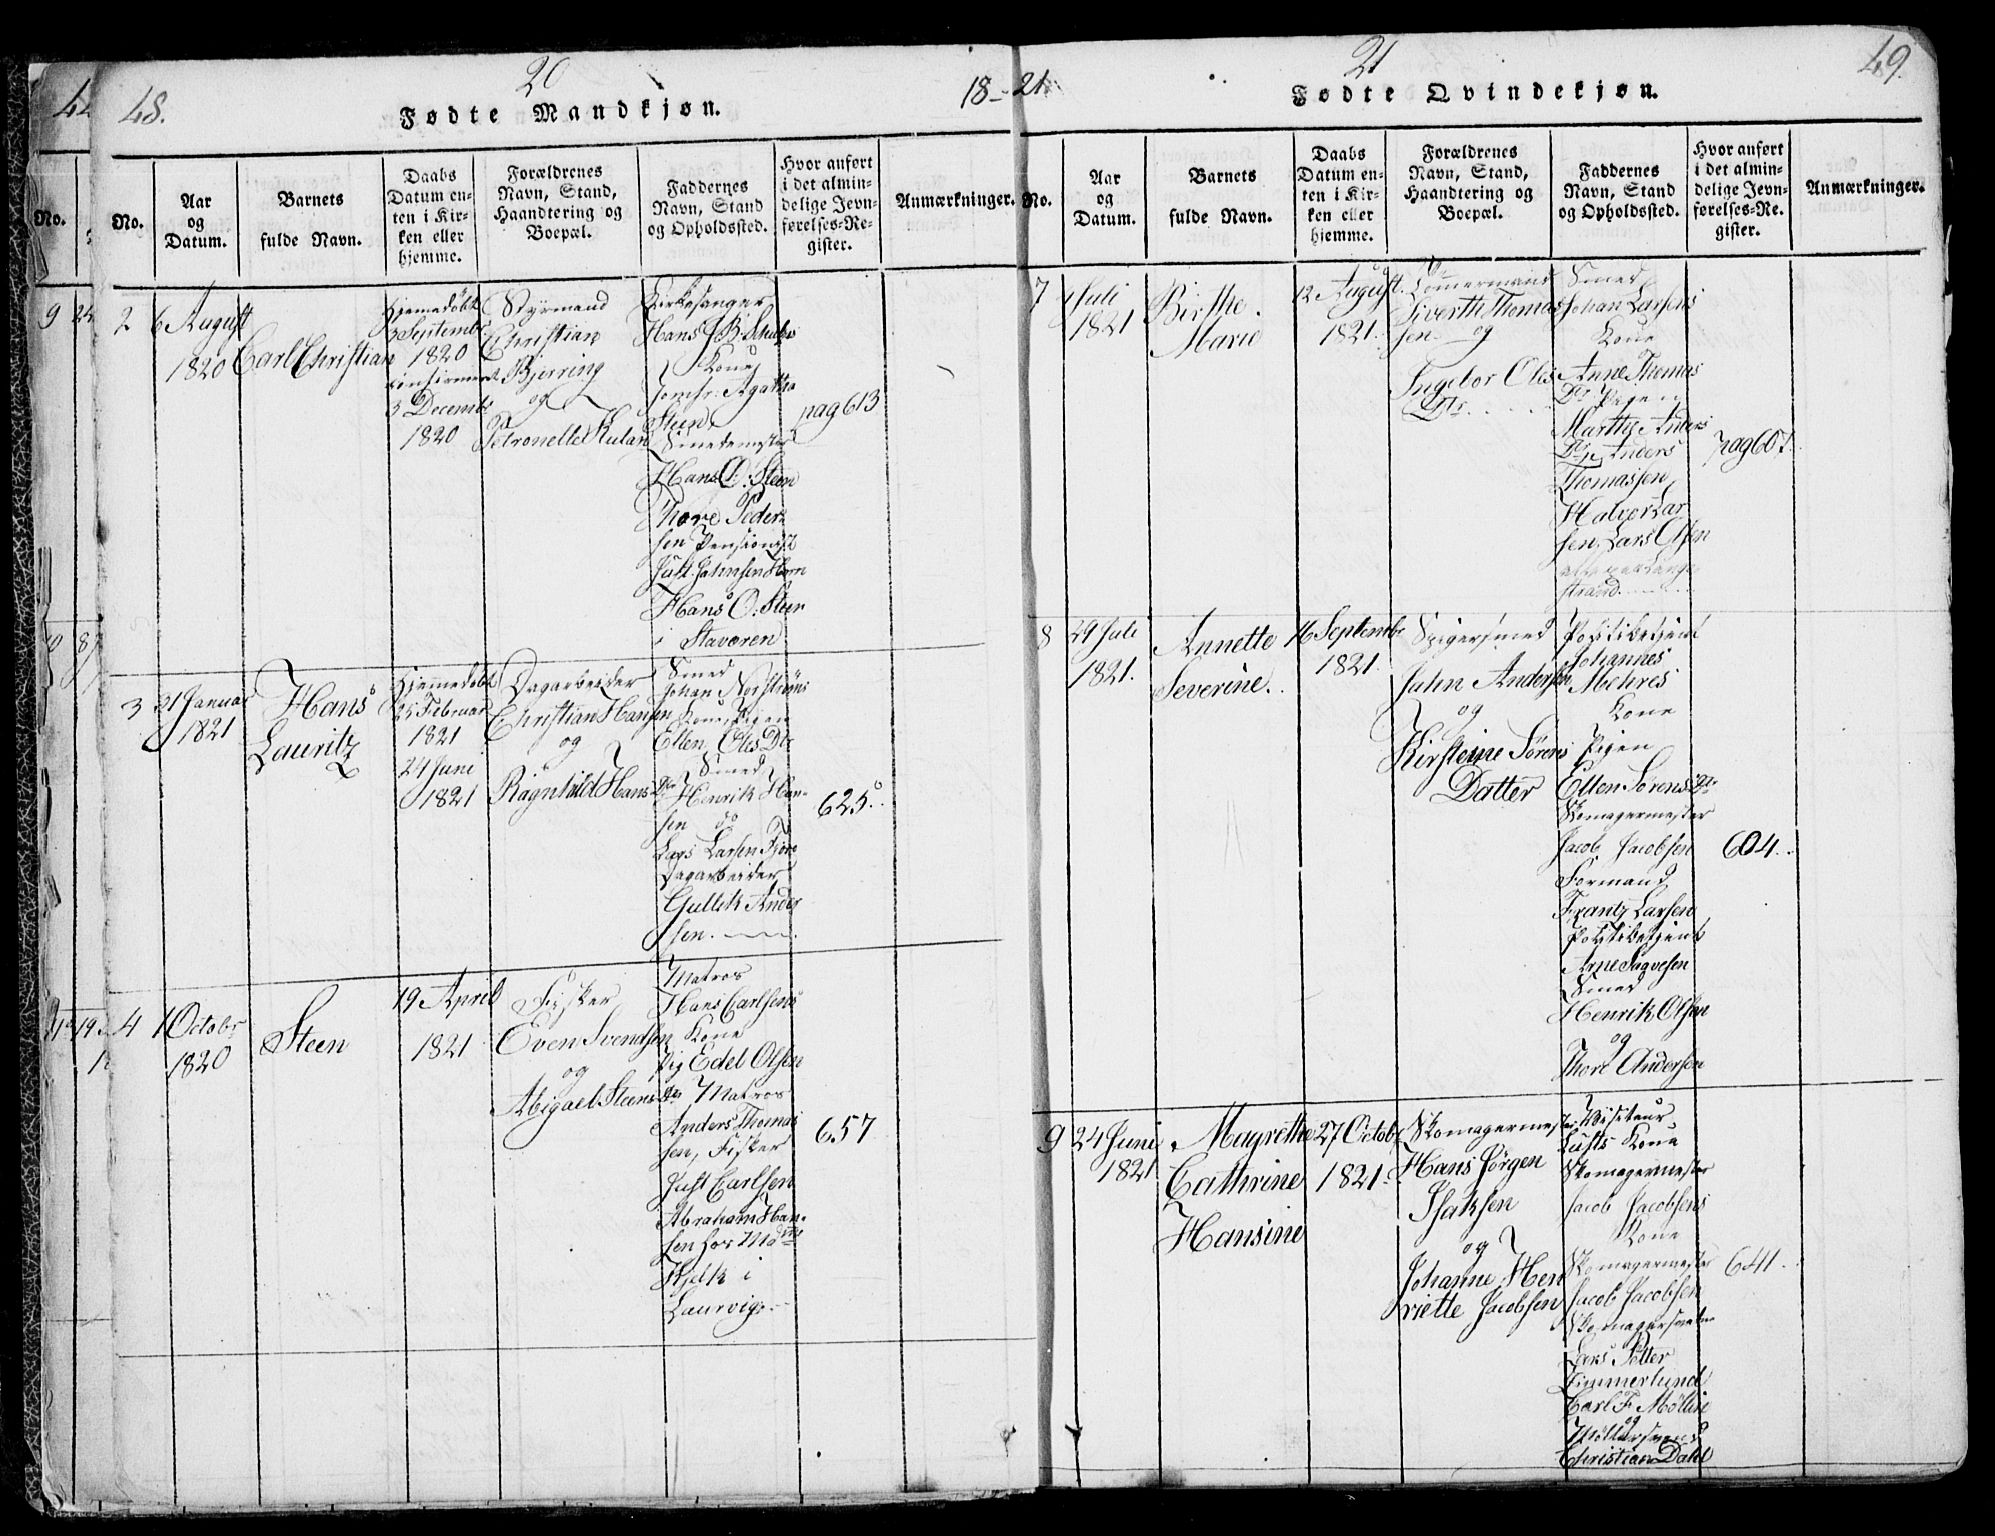 48.
20
18-21
Fødte Mandkjøn.
No.
Aar
og
Datum.
Barnets
fulde Navn.
Daabs
Datum en-
ten i Kir-
ken eller
hjemme.
Forældrenes
Navn, Stand,
Haandtering og
Boepæl.
Faddernes
Navn, Stand
og Opholdssted.
Hvor anført
i det almin-
delige Jevn-
førelses-Re-
gister.
Anmærkninger.
2
6 August
1820
Carl Christian
Hjemedøbt
3 Septembr
1820
3 Decembr
1820
Styrmand
Christian
Bjerring
og
Petronelle
Kirkesanger
Hans
Kone
Jomfr. Agatha
Steen
Smedemester
Hans O: Steen
Thore Peder
sen Pensionist
Just Jahnsen
Hans O: Steen
i Staværen
pag 613
3
21 Januar
1821
Hans
Lauritz
Hjemmedøbt
25 Februar
1821
24 Juni
1821
Dagarbeider
Christian Hansen
og
Ragnhild Hans Dtr
Smed
Johan Norstrøms
Kone, Pigen
Ellen Oles Dtr
Smed
Henrik Han-
sen do
Lars Larsen
Dagarbeider
Gullik Ander
sen.
625.
4
1 Octobr
1820
Steen
19 April
1821
Fisker
Even Svendsen
og
Abigael Steens Dr
Matros
Hans Carlsens
Kone
Pig Edel Olsen
Matros
Anders Thomas
sen, Fisker
Just Carlsen
Abraham Han-
sen hos
Hjelk i
Laurvig.
657
21
49.
Fødte Qvindekjøn.
No.
Aar
og
Datum.
Barnets
fulde Navn.
Daabs
Datum en-
ten i Kir-
ken eller
hjemme.
Forældrenes
Navn, Stand,
Haandtering og
Boepæl.
Faddernes
Navn, Stand
og Opholdssted.
Hvor anført
i det almin-
delige Jevn-
førelses-Re-
gister.
Anmærkninger.
7
1 Juli
1821
Birthe
Marie
12 August
1821.
Tømermand
Siverth Thomas
sen og
Ingebor Oles
Dtr.
Smed
Johan Larsens
Kone
Anne Thomas
Dr Pigen
Marthe Anders
Dr, Anders
Thomassen
Halvor Lar
sen. Lars Olsen
strand.
pag 607.
8
29 Juli
1821.
Annette
Severine.
16 Septembr
1821.
Spigersmed
Jahn Andersen
og
Kirsteine Sørens
Datter
Politibetjent
Johannes
Mehres
Kone
Pigen
Ellen Sørens Dr
Skomagermester
Jacob Jacobsen
Formand
Frantz Larsen
Politibetjent
Arne Sagvesen
Smed
Henrik Olsen
og
Thore Andersen
604.
9
24 Juni
1821
Magrethe
Cathrine
Hansine
27 Octobr
1821.
Skomagermester
Hans Jørgen
Isaksen
og
Johanne Hen
riette Jacobsen
Visiteur
Lusts Kone
Skomagermester
Jacob Jacobsens
Kone
Skomagermester
Jacob Jacobsen
Lars Petter
Zimmerlund
Carl F Møller
og
Christian Dahl
641.